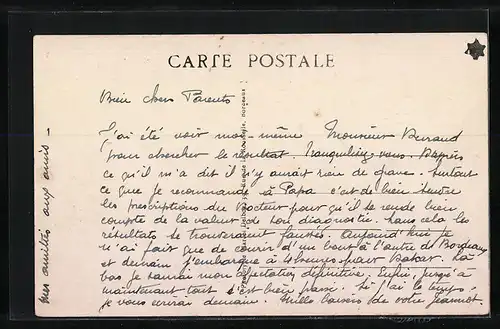 CARTE POSTALE
Bien chers Parents
J'ai été voir moi-même Monsieur Durand
pour chercher le résultat. Tranquillisez vous. D'après
ce qu'il m'a dit il n'y aurait rien de grave. Surtout
ce que je recommande à Papa c'est de bien suivre
les prescriptions du Docteur pour qu'il se rende bien
compte de la valeur de son diagnostic. Sans cela les
résultats se trouveraient faussés. Aujourd'hui je
n'ai fait que de courir d'un bout à l'autre de Bordeaux
et demain j'embarque à 4 heures pour Dakar. Là
bas je saurai mon affectation définitive. Enfin, jusqu'à
maintenant tout s'est bien passé. Si j'ai le temps,
je vous écrirai demain. Mille baisers de votre Jeannot
Mes amitiés aux amis -